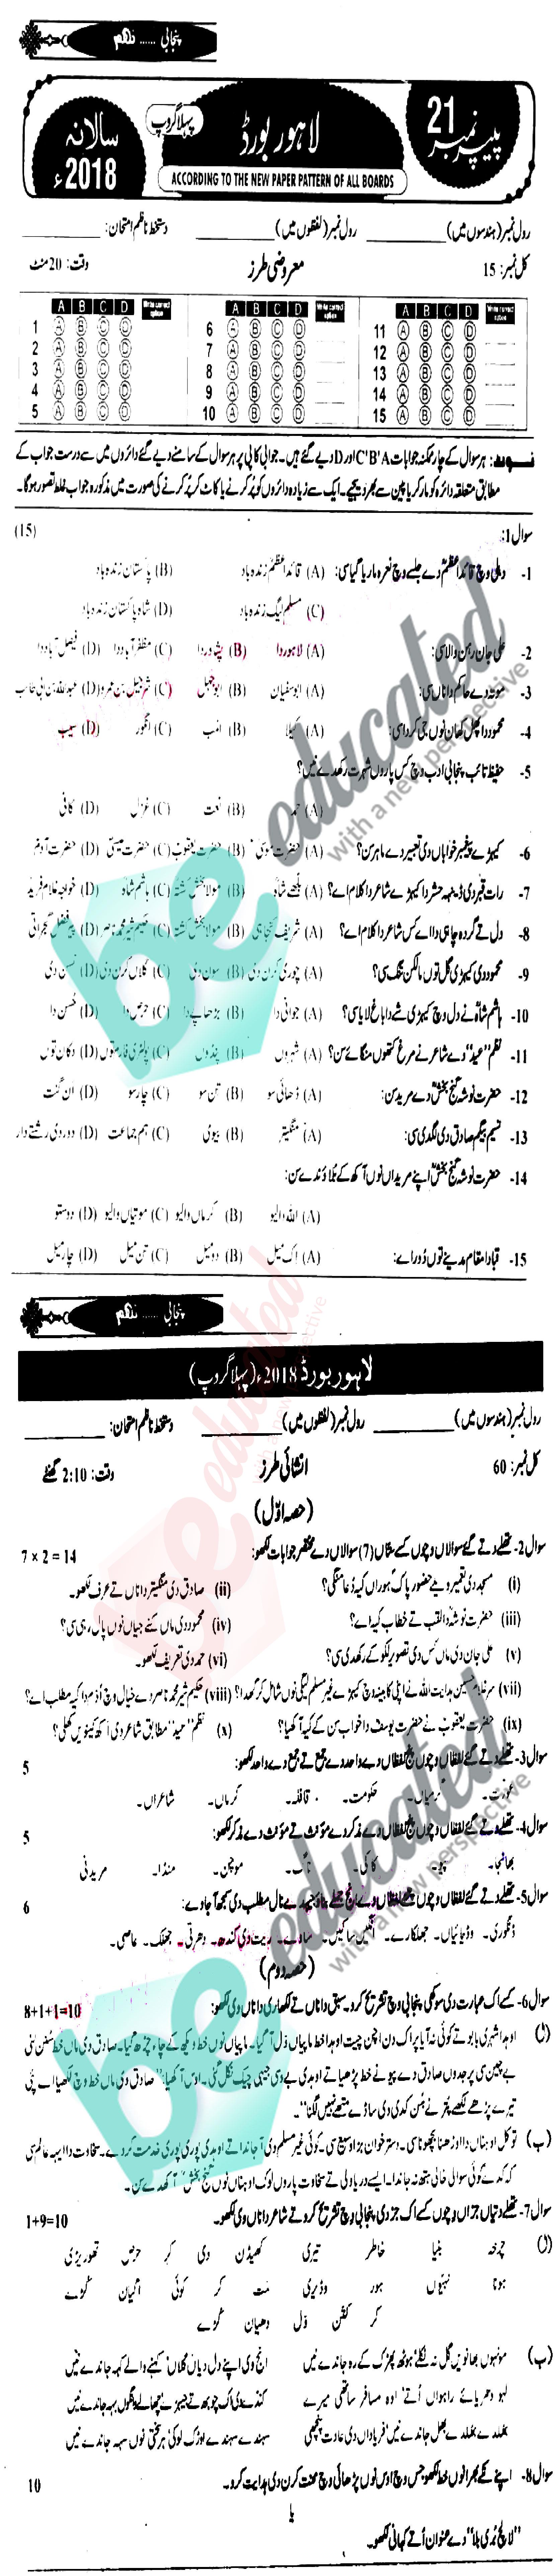 پنجابی ...... نہم
پیپر نمبر 21
لاہور بورڈ
پہلا گروپ
سالانہ 2018ء
ACCORDING TO THE NEW PAPER PATTERN OF ALL BOARDS
رول نمبر (ہندسوں میں) ____________ رول نمبر (لفظوں میں) ____________ دستخط ناظم امتحان: ____________
کل نمبر: 15 معروضی طرز وقت: 20 منٹ
A B C D Write correct option
1 A B C D
2 A B C D
3 A B C D
4 A B C D
5 A B C D
A B C D Write correct option
6 A B C D
7 A B C D
8 A B C D
9 A B C D
10 A B C D
A B C D Write correct option
11 A B C D
12 A B C D
13 A B C D
14 A B C D
15 A B C D
نوٹ: ہر سوال کے چار ممکنہ جوابات C'B'A اور D دیے گئے ہیں۔ جوابی کاپی پر ہر سوال کے سامنے دیے گئے دائروں میں سے درست جواب کے
مطابق متعلقہ دائرہ کو مارکر یا پین سے بھر دیجیے۔ ایک سے زیادہ دائروں کو پُر کرنے یا کاٹ کر پُر کرنے کی صورت میں مذکورہ جواب غلط تصور ہو گا۔
سوال 1: (15)
1- دلی وچ قائداعظمؒ دے جلسے وچ نعرہ ماریا گیا سی: (A) قائداعظمؒ زندہ باد (B) پاکستان زندہ باد
(C) مسلم لیگ زندہ باد (D) شاہ پاکستان زندہ باد
2- علی جان رہن والا سی: (A) لاہور دا (B) پشور دا (C) مظفر آباد دا (D) فیصل آباد دا
3- موتہ دے حاکم دا ناں سی: (A) ابوسفیان (B) ابوجہل (C) شرجیل بن عمرو (D) عبداللہ بن ابی طالب
4- محمود دا پھل کھان نوں جی کردا سی: (A) کیلا (B) امب (C) انگور (D) سیب
5- حفیظ تائب پنجابی ادب وچ کس پاروں شہرت رکھدے نیں؟
(A) حمد (B) نعت (C) غزل (D) کافی
6- کیہڑے پیغمبر خواباں دی تعبیر دے ماہر سن؟ (A) حضرت موسیٰؑ (B) حضرت یعقوبؑ (C) حضرت عیسیٰؑ (D) حضرت آدمؑ
7- رات قبر دی ڈینہہ حشر دا کیہڑے شاعر دا کلام اے؟ (A) بلھے شاہؒ (B) مولا بخش کشتہ (C) ہاشم شاہ (D) خواجہ غلام فریدؒ
8- دل تے گردہ چاہی دا اے کس شاعر دا کلام اے؟ (A) شریف کنجاہی (B) مولا بخش کشتہ (C) حکیم شیر محمد ناصر (D) پیر فضل گجراتی
9- محمود دی کیہڑی گل توں مالکن تنگ سی؟ (A) چوری کرن دی (B) سون دی (C) گلاں کرن دی (D) نسن دی
10- ہاشم شاہؒ نے دل وچ کیہڑی شے دا باغ لایا سی؟ (A) جوانی دا (B) بڑھاپے دا (C) حرص دا (D) حُسن دا
11- نظم "عید" دے شاعر نے مرغ کتھوں منگائے سن؟ (A) شہروں (B) پنڈوں (C) پولٹری فارموں (D) دکان توں
12- حضرت نوشہ گنج بخشؒ دے مرید سن: (A) ڈھائی سو (B) تن سو (C) چار سو (D) ان گنت
13- نسیم بیگم صادق دی لگدی سی: (A) منگیتر (B) بیوی (C) ہم جماعت (D) دور دی رشتے دار
14- حضرت نوشہ گنج بخشؒ اپنے مریداں نوں آکھ کے بلاؤندے سن:
(A) اللہ والیو (B) کرماں والیو (C) موتیاں والیو (D) دوستو
15- قبا دا مقام مدینے توں دُور اے: (A) اِک میل (B) دو میل (C) تن میل (D) چار میل
پنجابی ...... نہم
لاہور بورڈ 2018ء (پہلا گروپ)
رول نمبر (ہندسوں میں) ____________ رول نمبر (لفظوں میں) ____________ دستخط ناظم امتحان: ____________
کل نمبر: 60 انشائی طرز وقت: 2:10 گھنٹے
(حصہ اوّل)
سوال 2- تھلے دتے گئے سوالاں وچوں کسے ستاں (7) سوالاں دے مختصر جوابات لکھو: 7 × 2 = 14
(i) مسجد دی تعمیر ویلے حضور پاک ہوراں کیہ دُعا منگی؟ (ii) صادق دی منگیتر دا ناں تے عرف لکھو۔
(iii) حضرت نوشہؒ دا لقب تے خطاب کیہ اے؟ (iv) محمود دی ماں کنے جیاں نوں پال رہی سی؟
(v) علی جان دی ماں کس دی تصویر لکو کے رکھدی سی؟ (vi) حمد دی تعریف لکھو۔
(vii) سر غلام حسین ہدایت اللہ نے اپنی کابینہ وچ کیہڑے غیر مسلم لیگی نوں شامل کر گھدا؟ (viii) حکیم شیر محمد ناصر دے خیال وچ اُدّم دا کیہ مطلب اے؟
(ix) حضرت یعقوبؑ نے حضرت یوسفؑ دا خواب سن کے کیہ آکھیا؟ (x) نظم "عید" مطابق شاعر دی اکھ کیویں کھلی؟
سوال 3- تھلے دتے گئے لفظاں وچوں پنج لفظاں دے واحد دے جمع تے جمع دے واحد لکھو: 5
عورت۔ کرسیاں۔ حکومت۔ قافلہ۔ کرماں۔ شاعراں۔
سوال 4- تھلے دتے گئے لفظاں وچوں پنج لفظاں دے مذکر دے مؤنث تے مؤنث دے مذکر لکھو: 5
بھانجا۔ کاکی۔ ناگ۔ موچن۔ منڈا۔ مریدنی
سوال 5- تھلے دتے گئے لفظاں وچوں چھے لفظاں دے انج جملے بناؤ جیہدے نال مطلب دی سمجھ آ جاوے: 6
ڈنگوری۔ وڈیائیاں۔ جھلکارے۔ ساوے۔ ریت دی کندھ۔ دھرتی۔ جھلک۔ عاصی۔
(حصہ دوم)
سوال 6- کسے اک عبارت دی سوکھی پنجابی وچ تشریح کرو۔ سبق دا ناں تے لکھاری دا ناں وی لکھو: 8+1+1=10
(ا) اوہدا شہری بابو تے کوئی نہ آیا پر اک دن اچن چیت اوہدا خط ماپیاں ول آ گیا۔ ماپیاں نوں خط ویکھ کے چاہ چڑھ گیا۔ صادق دی ماں خط سُنن لئی
بے چین سی پر جدوں صادق دے پیو نے خط پڑھیا تے اوہدی بے وسی جیہی چیک نکل گئی۔ اوس آکھیا: "صادق دی ماں خط وچ لکھیا اے پئی
تیرے پڑھے لکھے پُتر نے ہُن کدی وی ساڈے متھے نہیں لگنا"۔
(ب) توکل اوہناں دا اوڑھنا بچھونا سی۔ دسترخوان بڑا وسیع سی۔ کوئی غیر مسلم وی آ جاندا تے اوہدی پوری پوری خدمت کردے۔ سخاوت دا ایہہ عالم سی
کہ کدے کوئی سوالی خالی ہتھ نہ جاندا۔ ایسے دریا دلی تے سخاوت پاروں لوک اوہناں نوں "گنج بخش" آکھدے سن۔
سوال 7- تھلے دتیاں جزاں وچوں کسے اک جز دی پنجابی وچ تشریح کرو تے شاعر دا ناں وی لکھو: 1+9=10
(ا) چرخہ بنیا خاطر تیری کھیڈن دی کر حرص تھوریڑی
ہونا نہیوں ہور وڈیری مَت کر کوئی اگیان کُڑے
کر کتن وَل دھیان کُڑے
(ب) مونہوں بھانویں گل نہ نکلے ہوٹھ پھڑک کے رہ جاندے نیں انج وی اپنے دل دیاں گلاں کہنے والے کہہ جاندے نیں
لہو دھریائے راہواں اُتے اوہ مسافر ساتھی میرے کنڈے دی اک چوبھ تے جیہڑے چھالے وانگوں بہہ جاندے نیں
ہلدے ہلدے ہل جاندے نیں فریاداں دی عادت پنچھی سہندے سہندے اوڑک لوکی ہر سختی نوں سہہ جاندے نیں
سوال 8- اپنے نکے بھرا نوں خط لکھو جس وچ اوس نوں پڑھائی وچ محنت کرن دی ہدایت کرو۔ 10
یا
"لالچ بُری بلا" دے عنوان اُتے کہانی لکھو۔
be educated
with a new perspective
be educated
be educated
with a new perspective